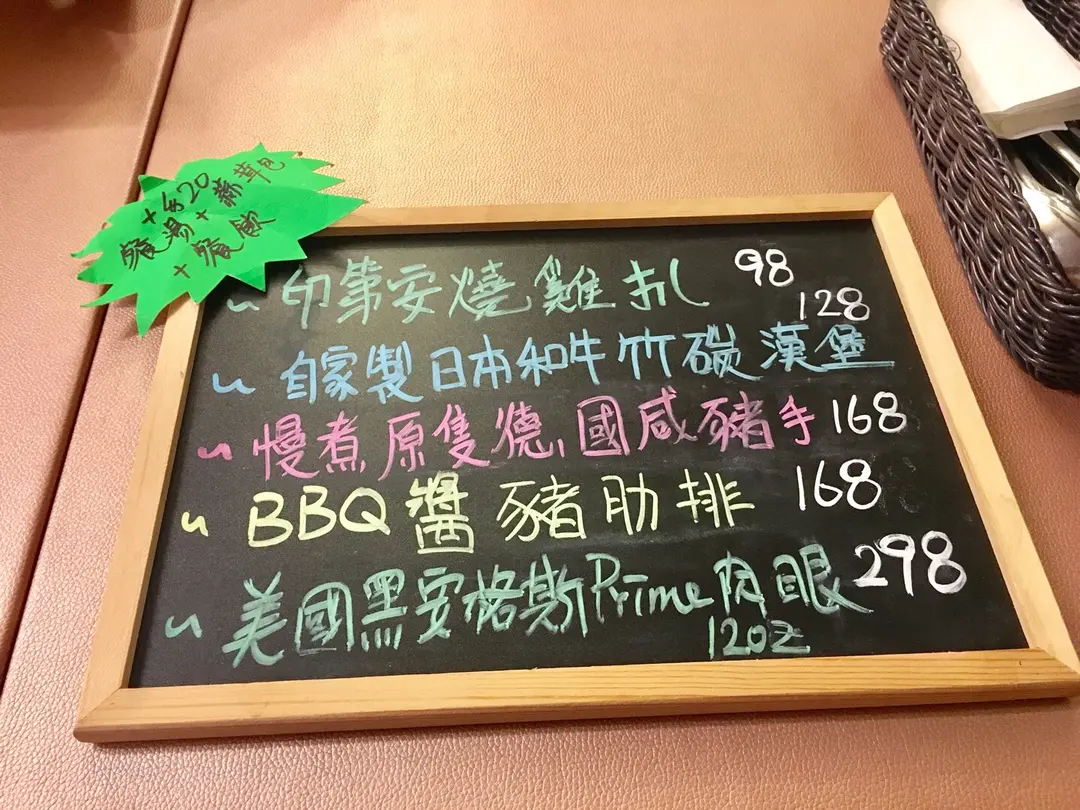 +$20
餐湯+蒜茸包
+餐飲
~ 印第安燒雞扎 98
128
~ 自家製日本和牛竹碳漢堡
~ 慢煮原隻德國咸豬手 168
~ BBQ醬豬肋排 168
~ 美國黑安格斯Prime肉眼 298
12oz